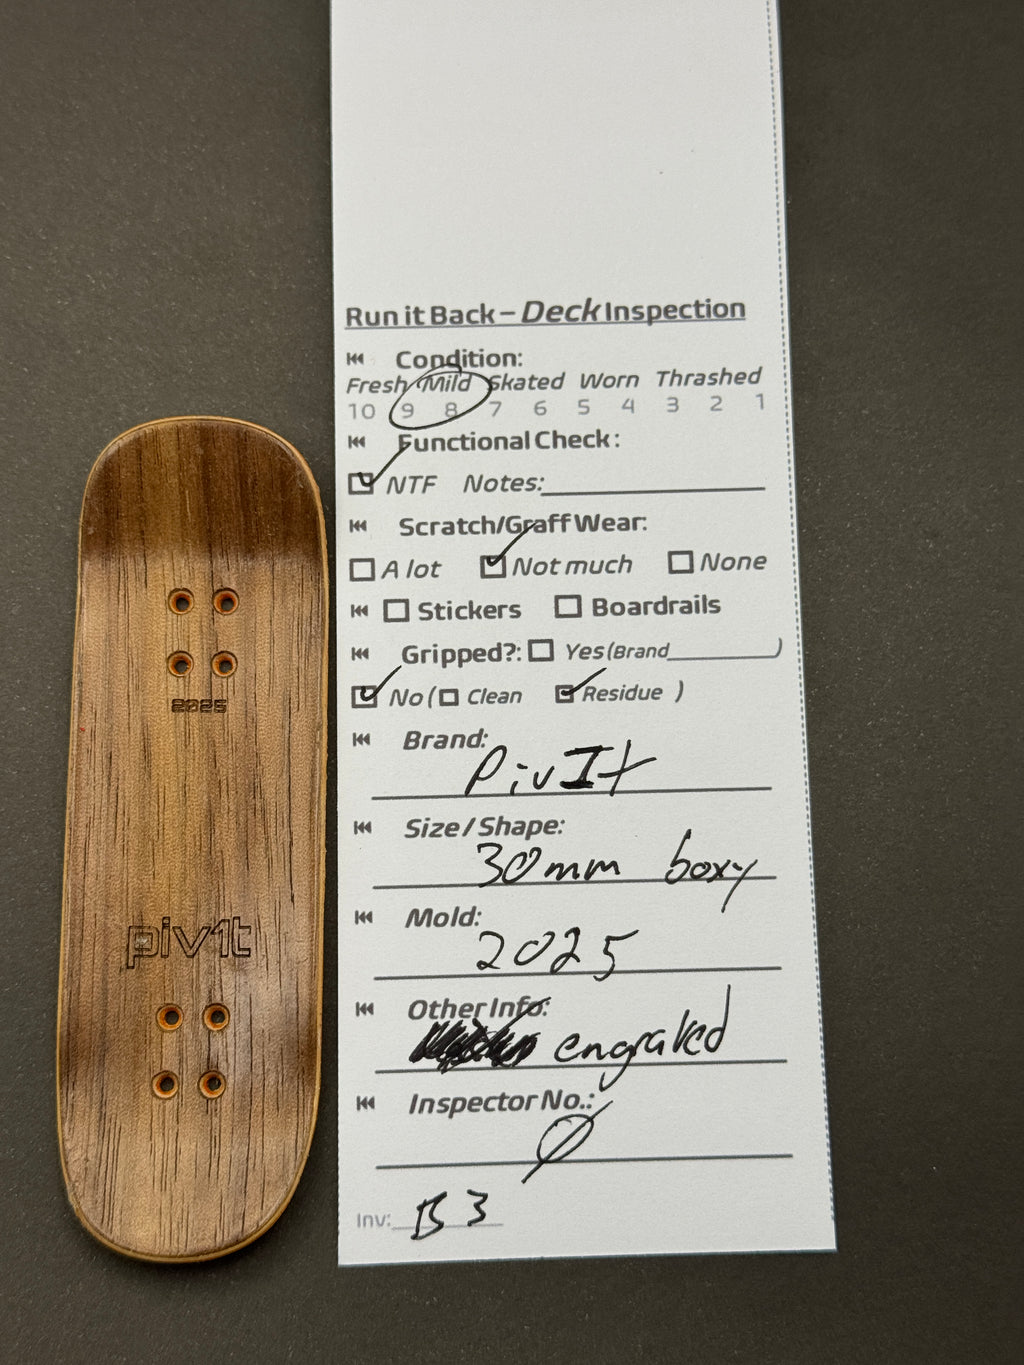 Run it Back – Deck Inspection
Condition:
Fresh Mild Skated Worn Thrashed
10 9 8 7 6 5 4 3 2 1
Functional Check:
NTF Notes:
Scratch/Graff Wear:
A lot Not much None
Stickers Boardrails
Gripped?: Yes (Brand )
No ( Clean Residue )
Brand:
PivIt
Size / Shape:
30mm boxy
Mold:
2025
Other Info:
engraved
Inspector No.:
Ø
Inv: B3
2025
piv1t